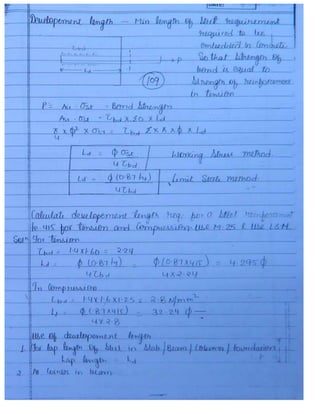 Developement length — Min length of steel requirement
required to be
embedded in concrete
So that strength of
bond is equal to
strength of reinforcement
in tension
τbd
P
Ld
109
P = Ast σst = Bond Strength
Ast · σst = τbd × Σo × Ld
π/4 × ϕ² × σst = τbd Σ × π × ϕ × Ld
Ld = ϕ σst / 4 τbd Working Stress method
Ld = ϕ (0.87 fy) / 4 τbd Limit State method
Calculate developement length req. for a steel reinforcement
fe 415 for tension and compression. Use M-25 & Use LSM.
Solⁿ For tension
τbd = 1.4×1.60 = 2.24
Ld = ϕ (0.87 fy) / 4 τbd = ϕ (0.87×415) / 4×2.24 = 4.295 ϕ
In Compression
τbd = 1.4×1.6×1.25 = 2.8 N/mm²
Ld = ϕ (.87×415) / 4×2.8 = 32.24 ϕ
Use of developement length
1. For lap length of steel in slab / Beam / Column / foundation
Lap length = Ld
2. At corner in beam